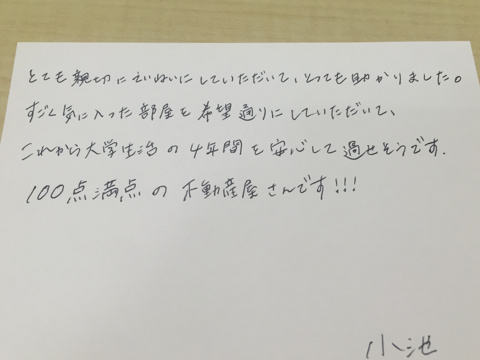 とても親切にていねいにしていただいて、とっても助かりました。
すごく気に入った部屋を希望通りにしていただいて、
これから大学生活の4年間を安心して過せそうです.
100点満点の不動産屋さんです!!!
小池